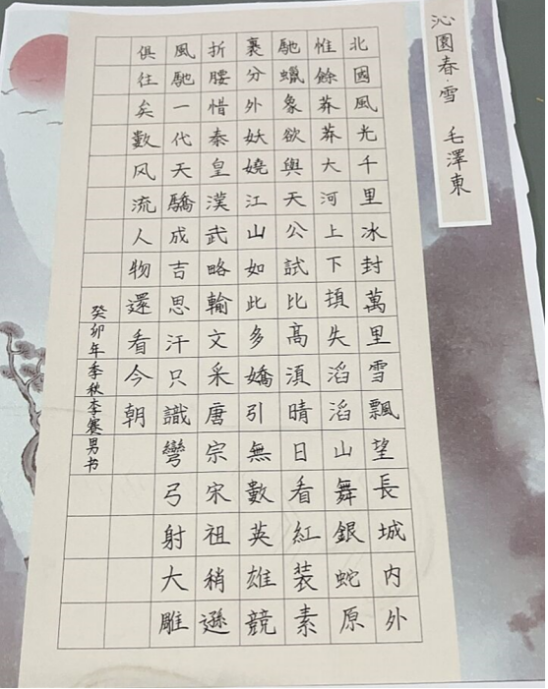 沁園春·雪 毛澤東
北國風光千里冰封萬里雪飄望長城内外
惟餘莽莽大河上下頓失滔滔山舞銀蛇原
馳蠟象欲與天公試比高湏晴日看紅装素
裹分外妖嬈江山如此多嬌引無數英雄競
折腰惜秦皇漢武略輸文采唐宗宋祖稍遜
風馳一代天驕成吉思汗只識彎弓射大雕
俱往矣數风流人物還看今朝
癸卯年季秋李男书